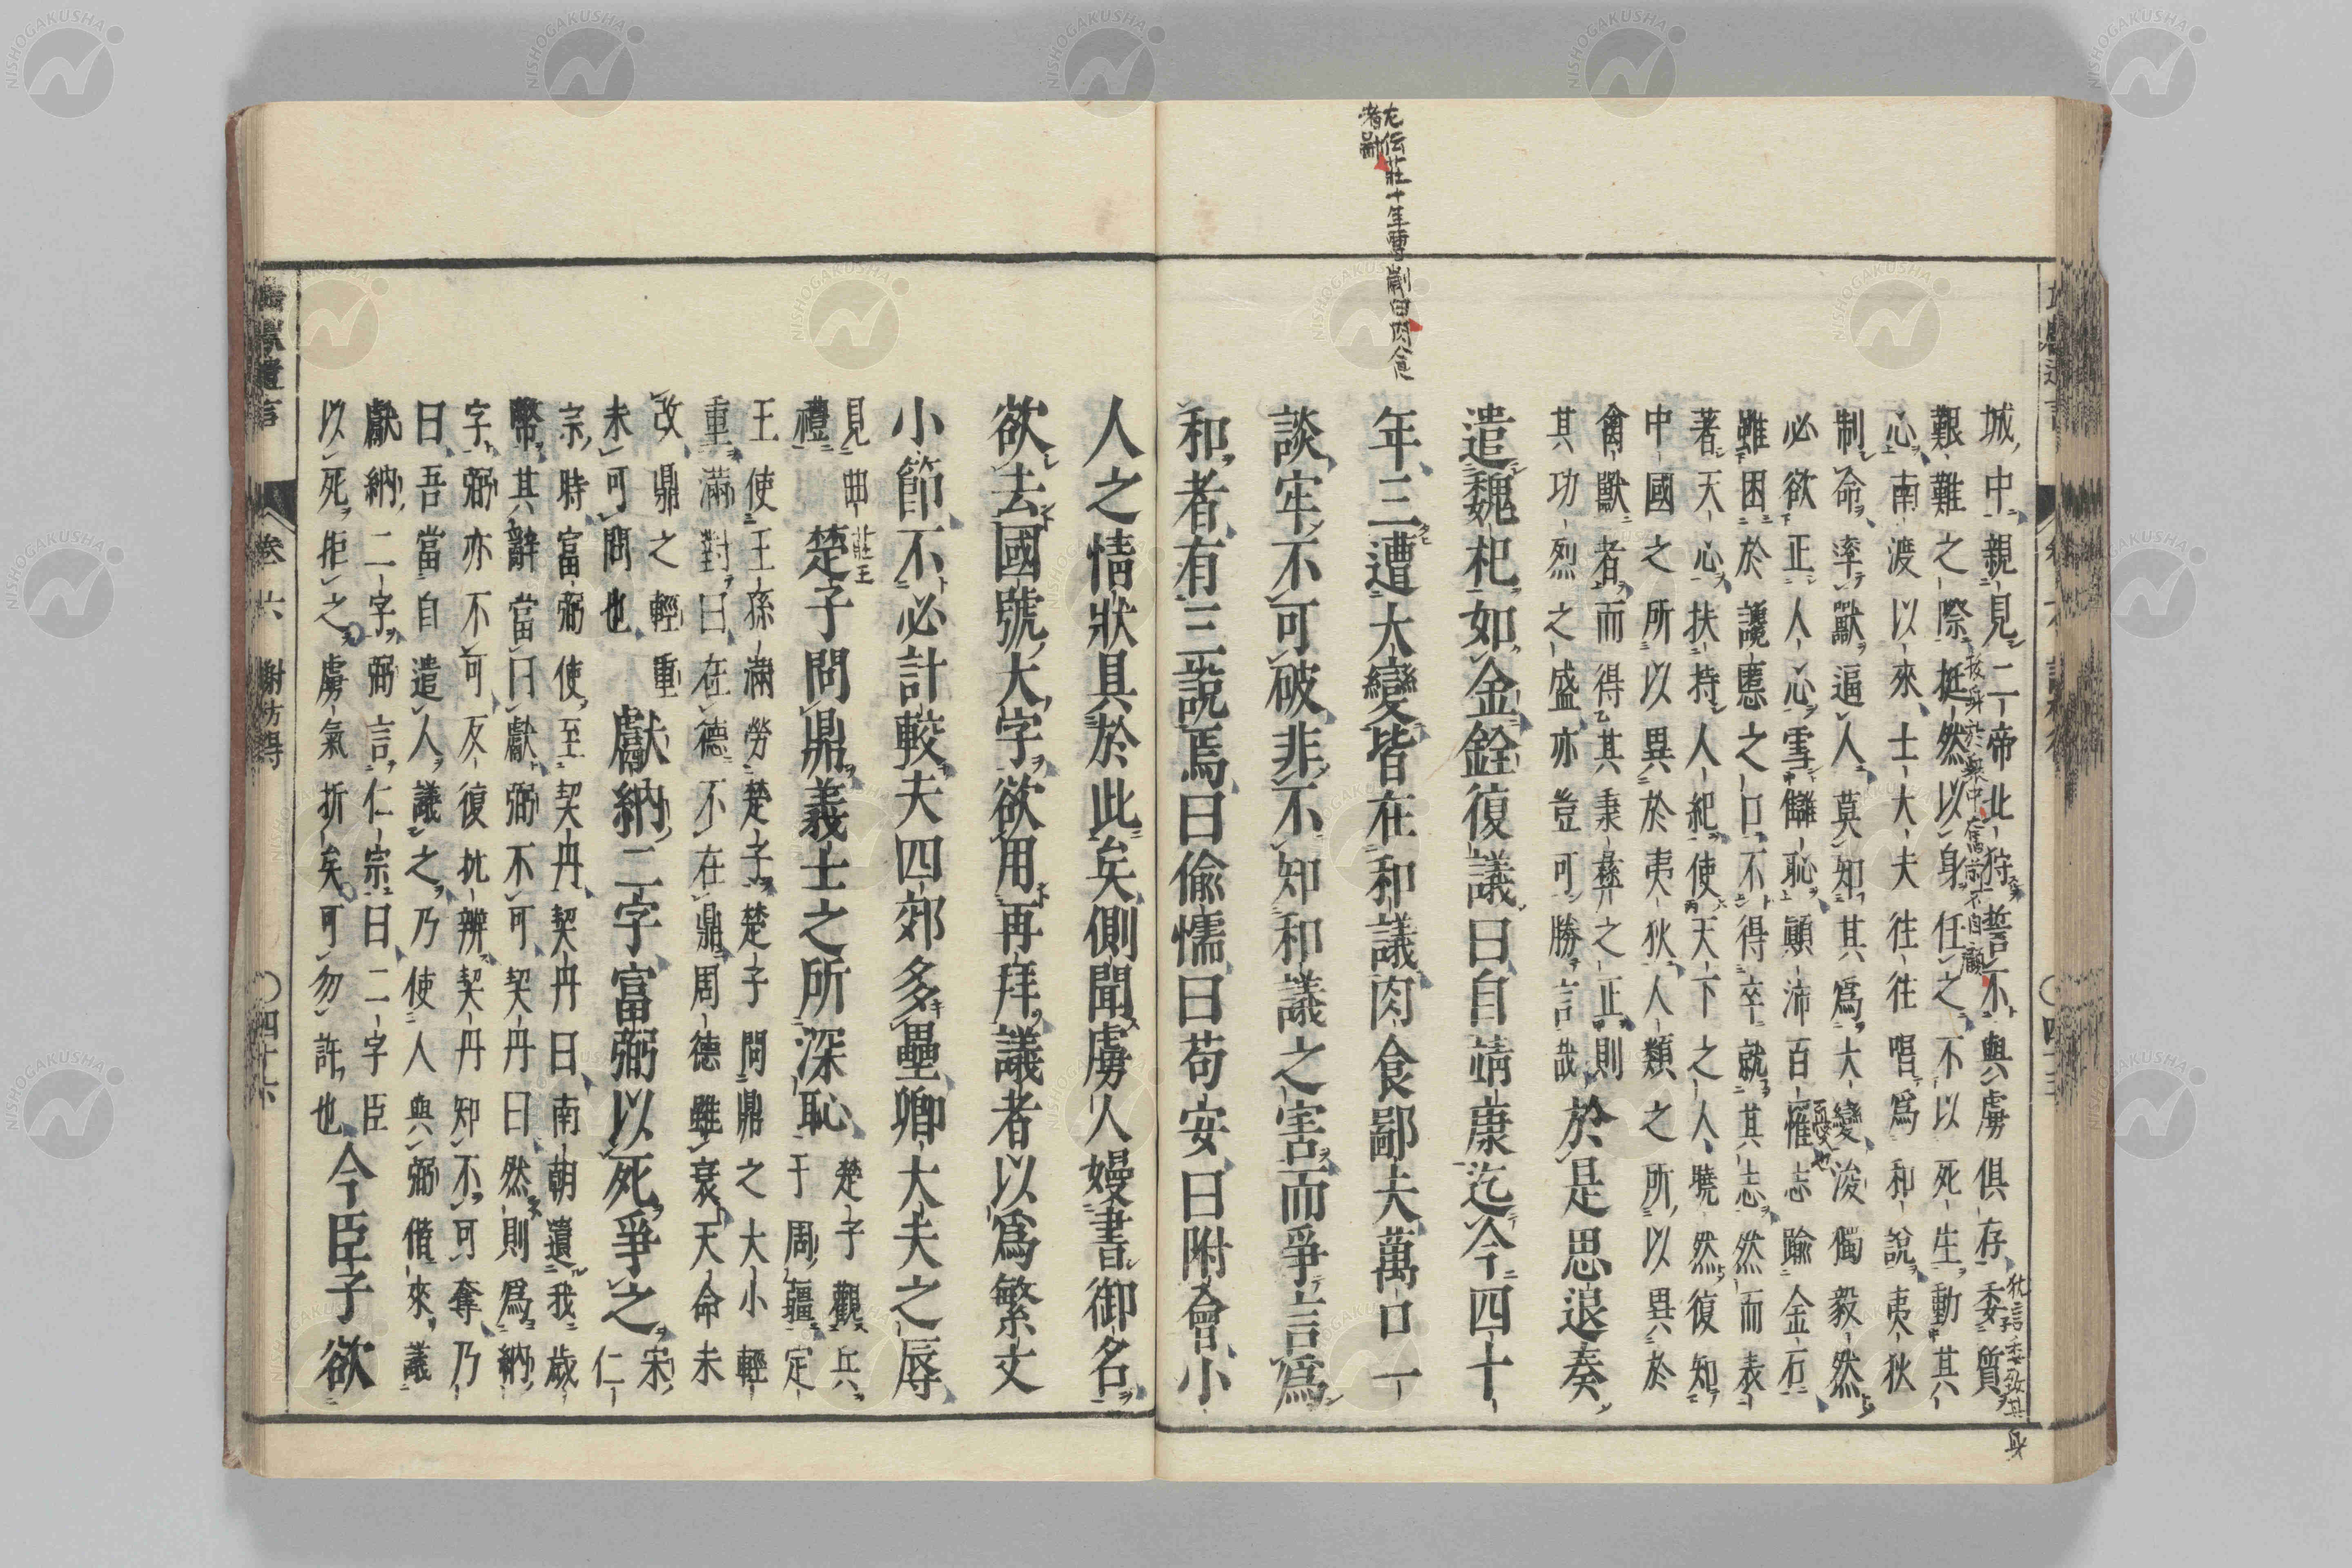 左伝莊十年曹劌曰肉食
者鄙
城中親見二帝北狩誓不與虜俱存委質
艱難之際挺然以身任之不以死生動其
心南渡以來士大夫往往唱爲和說夷狄
制命率獸逼人莫知其爲大變浚獨毅然
必欲正人心雪讎恥顚沛百罹志踰金石
雖困於讒慝之口不得卒就其志然而表
著天心扶持人紀使天下之人曉然復知
中國之所以異於夷狄人類之所以異於
禽獸者而得其秉彝之正則
其功烈之盛亦豈可勝言哉於是思退奏
遣魏杞如金銓復議曰自靖康迄今四十
年三遭大變皆在和議肉食鄙夫萬口一
談牢不可破非不知和議之害而爭言爲
和者有三說焉曰偷懦曰苟安曰附會小
挺身於衆中奮前不自顧
憂也
猶言委致其身
人之情狀具於此矣側聞虜人嫚書御名
欲去國號大字欲用再拜議者以爲繁文
小節不必計較夫四郊多壘卿大夫之辱
見曲
禮
楚子問鼎義士之所深恥
莊王
楚子觀兵
于周疆定
王使王孫滿勞楚子楚子問鼎之大小輕
重滿對曰在德不在鼎周德雖衰天命未
改鼎之輕重
未可問也
獻納二字富弼以死爭之
宋
仁
宗時富弼使至契丹契丹曰南朝遺我歲
幣其辭當曰獻弼不可契丹曰然則爲納
字弼亦不可反復抗辨契丹知不可奪乃
曰吾當自遣人議之乃使人與弼偕來議
獻納二字弼言仁宗曰二字臣
以死拒之虜氣折矣可勿許也
今臣子欲
卷六
謝方得
○四十六